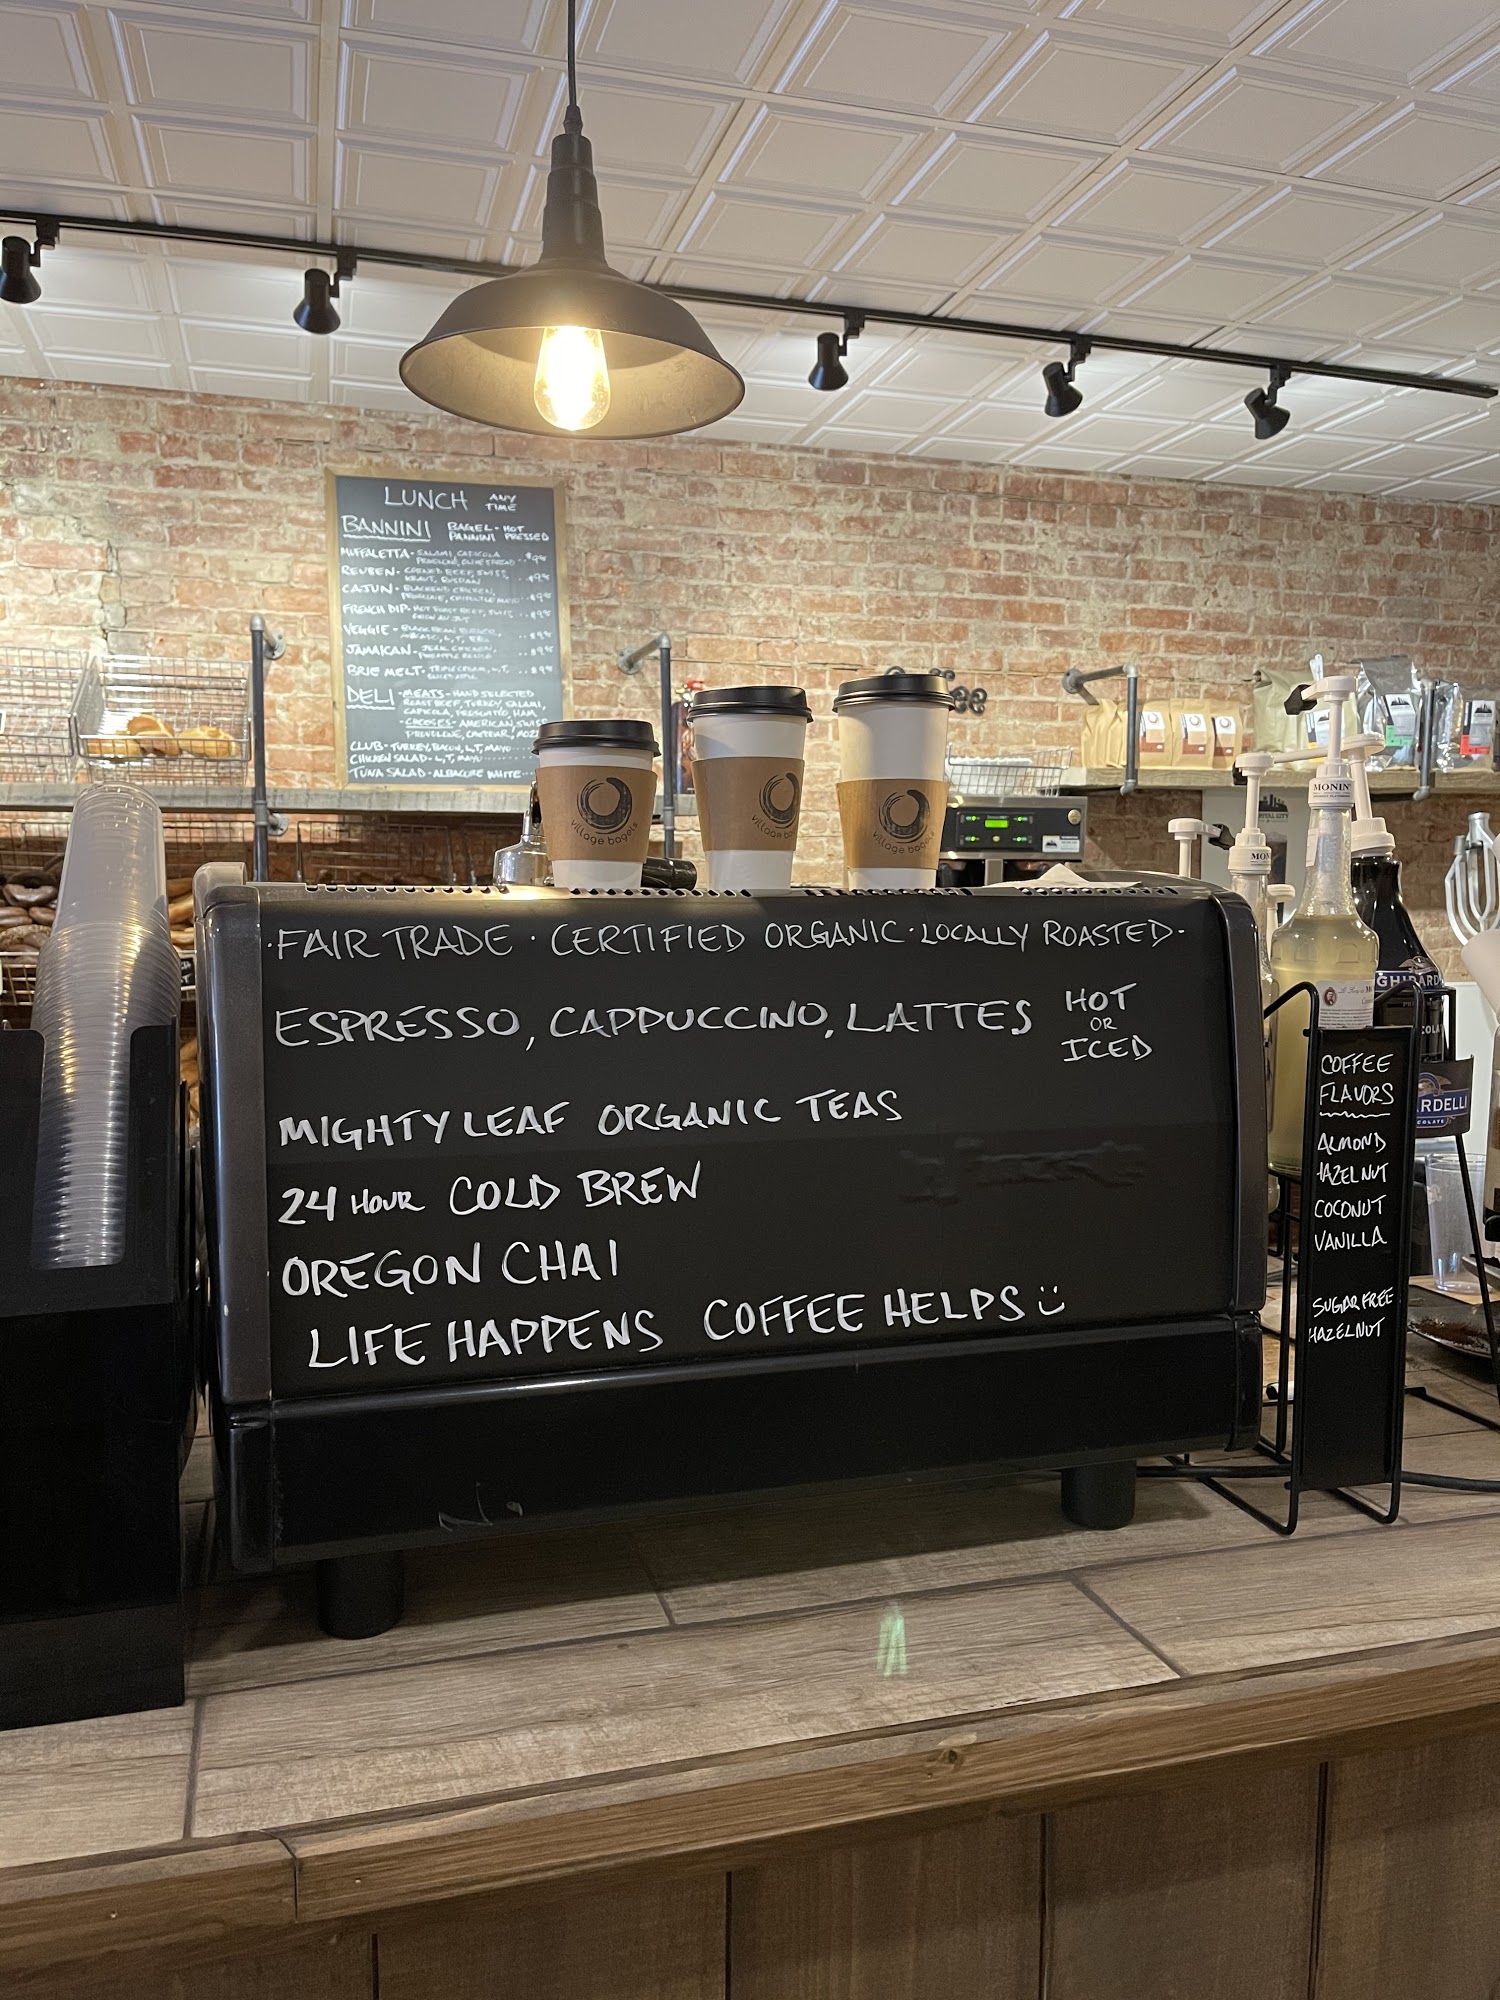 LUNCH ANY TIME
BANNINI BAGEL - HOT
PANNINI PRESSED
MUFFALETTA - SALAMI, CAPICOLA
REUBEN - CORNED BEEF, SWISS,
KRAUT, RUSSIAN
CAJUN - BLACKEND CHICKEN,
FRENCH DIP - HOT ROAST BEEF, SWISS
VEGGIE - BLACK BEAN BURGER,
JAMAICAN - JERK CHICKEN,
BRIE MELT - TRIPLE CREAM, L, T,
DELI - MEATS - HAND SELECTED
ROAST BEEF, TURKEY, SALAMI,
CAPICOLA, PROSCIUTTO, HAM
- CHEESES - AMERICAN, SWISS
PROVOLONE, CHEDDAR, MOZZ
CLUB - TURKEY, BACON, L, T, MAYO
CHICKEN SALAD - L, T, MAYO
TUNA SALAD - ALBACORE WHITE
village bagels
village bagels
village bagels
· FAIR TRADE · CERTIFIED ORGANIC · LOCALLY ROASTED ·
ESPRESSO, CAPPUCCINO, LATTES HOT OR ICED
MIGHTY LEAF ORGANIC TEAS
24 HOUR COLD BREW
OREGON CHAI
LIFE HAPPENS COFFEE HELPS
MONIN
MON
GHIRARD
RDELLI
COFFEE
FLAVORS
ALMOND
HAZELNUT
COCONUT
VANILLA
SUGAR FREE
HAZELNUT